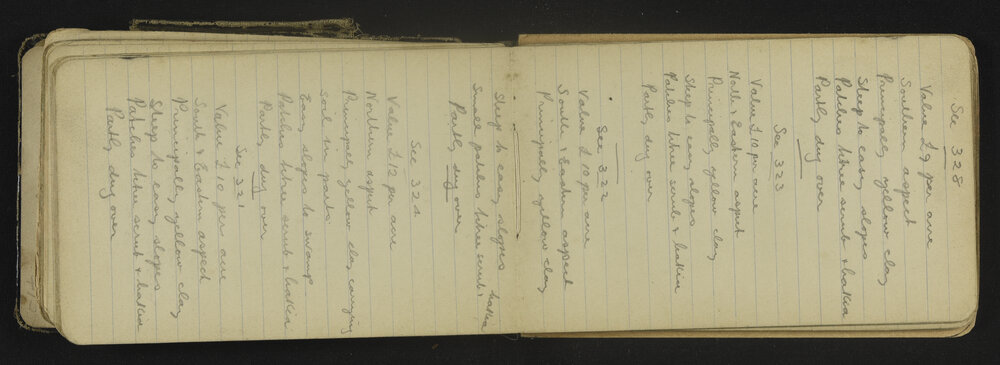 Sec 328
Value £9 per acre
Southern aspect
Principally yellow clay
Steep to easy slopes
Patches titree scrub & hakea
Partly dug over
Sec 323
Value £10 per acre
North & Eastern aspect
Principally yellow clay
Steep to easy slopes
Patches titree scrub & hakea
Partly dug over
Sec 322
Value £10 per acre
South & Eastern aspect
Principally yellow clay
Steep to easy slopes
Small patches titree scrub & hakea
Partly dug over
Sec 324
Value £12 per acre
Northern aspect
Principally yellow clay carrying
soil in parts.
Easy slopes to swamp.
Patches titree scrub & hakea
Partly dug over
Sec 321
Value £10 per acre
South & Eastern aspect
Principally yellow clay
Steep to easy slopes
Patches titree scrub & hakea
Partly dug over